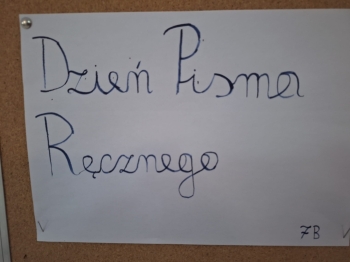 Dzień Pisma
Ręcznego
7B